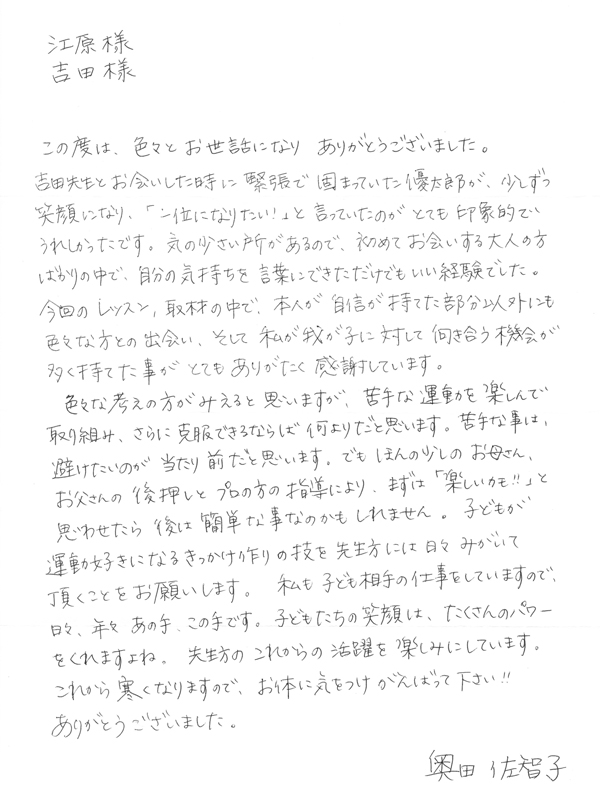 江原様
吉田様
この度は、色々とお世話になり ありがとうございました。
吉田先生とお会いした時に緊張で固まっていた優太郎が、少しずつ
笑顔になり、「一位になりたい!」と言っていたのがとても印象的で
うれしかったです。気の少さい所があるので、初めてお会いする大人の方
ばかりの中で、自分の気持ちを言葉にできただけでもいい経験でした。
今回のレッスン,取材の中で、本人が自信が持てた部分以外にも
色々な方との出会い、そして私が我が子に対して向き合う機会が
多く持てた事がとてもありがたく感謝しています。
色々な考えの方がみえると思いますが、苦手な運動を楽しんで
取り組み、さらに克服できるならば何よりだと思います。苦手な事は、
避けたいのが当たり前だと思います。でもほんの少しのお母さん、
お父さんの後押しとプロの方の指導により、まずは「楽しいかも!!」と
思わせたら後は簡単な事なのかもしれません。子どもが
運動好きになるきっかけ作りの技を先生方には日々みがいて
頂くことをお願いします。私も子ども相手の仕事をしていますので、
日々、年々あの手、この手です。子どもたちの笑顔は、たくさんのパワー
をくれますよね。先生方のこれからの活躍を楽しみにしています。
これから寒くなりますので、お体に気をつけがんばって下さい!!
ありがとうございました。
奥田 佐智子